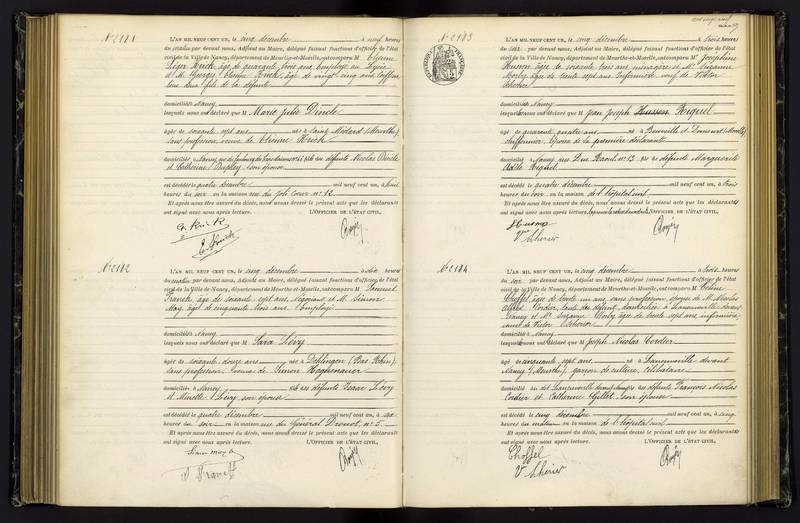 No 2181
L'AN MIL NEUF CENT UN, le cinq décembre à neuf heures
du matin par devant nous, Adjoint au Maire, délégué faisant fonctions d'officier de l'état
civil de la Ville de Nancy, département de Meurthe-et-Moselle, ont comparu M. Etienne
Léger Krick, âgé de quarante trois ans, Employé au Lycée
et M. Georges Etienne Krick, âgé de vingt cinq ans, coiffeur,
tous deux fils de la défunte
domiciliés à Nancy
lesquels nous ont déclaré que M Marie Julie Dinele
âgée de soixante sept ans née à Saint Médard (Meurthe)
sans profession, veuve de Etienne Krick
domiciliée à Nancy, rue du faubourg des Trois Maisons fille des défunts Nicolas Dinele
et Catherine Dupley son épouse
est décédée le quatre décembre mil neuf cent un, à huit
heures du soir en la maison rue du Joli Cœur no 12
Et après nous être assuré du décès, nous avons dressé le présent acte que les déclarants
ont signé avec nous après lecture. L'OFFICIER DE L'ÉTAT CIVIL,
G. Krick
E. Krick
No 2182
L'AN MIL NEUF CENT UN, le cinq décembre à dix heures
du matin par devant nous, Adjoint au Maire, délégué faisant fonctions d'officier de l'état
civil de la Ville de Nancy, département de Meurthe-et-Moselle, ont comparu M. Samuel
Franck âgé de soixante sept ans, négociant et M. Simon
May, âgé de cinquante trois ans, Employé
domiciliés à Nancy
lesquels nous ont déclaré que M Sara Lévy
âgée de soixante douze ans née à Dehlingen (Bas Rhin),
sans profession, veuve de Simon Haghenauer
domiciliée à Nancy fille des défunts Isaac Lévy
et Mindle Lévy son épouse
est décédée le quatre décembre mil neuf cent un, à six
heures du soir en la maison rue du Général Drouot, no 5
Et après nous être assuré du décès, nous avons dressé le présent acte que les déclarants
ont signé avec nous après lecture. L'OFFICIER DE L'ÉTAT CIVIL,
Simon May
S Franck
No 2183
L'AN MIL NEUF CENT UN, le cinq décembre à trois heures
du soir par devant nous, Adjoint au Maire, délégué faisant fonctions d'officier de l'état
civil de la Ville de Nancy, département de Meurthe-et-Moselle, ont comparu Me Joséphine
Husson âgée de soixante trois ans, ménagère et Me Suzanne
Morly âgée de trente sept ans, Infirmière, veuve de Victor
domiciliés à Nancy
lesquelles nous ont déclaré que M Jean Joseph Husson Riguel
âgé de quarante quatre ans né à
chiffonnier, Epoux de la première déclarante
domicilié à Nancy, rue fils de défunte Marguerite
Adèle Riguel
est décédé le quatre décembre mil neuf cent un, à trois
heures du soir en la maison de l'hôpital civil
Et après nous être assuré du décès, nous avons dressé le présent acte que les déclarants
ont signé avec nous après lecture. L'OFFICIER DE L'ÉTAT CIVIL,
Husson
Vve Cherier
No 2184
L'AN MIL NEUF CENT UN, le cinq décembre à trois heures
du soir par devant nous, Adjoint au Maire, délégué faisant fonctions d'officier de l'état
civil de la Ville de Nancy, département de Meurthe-et-Moselle, ont comparu Me
Choffel âgée de trente un ans, sans profession, épouse de M. Nicolas
Alfred Cordier, du défunt, domiciliée à Laneuveville devant
Nancy et Me Suzanne Morly âgée de trente sept ans, infirmière,
veuve de Victor
domiciliée à Nancy
lesquelles nous ont déclaré que M Joseph Nicolas Cordier
âgé de cinquante sept ans né à Laneuveville devant
Nancy (Meurthe), garçon de culture, célibataire
domicilié au dit Laneuveville devant Nancy fils des défunts François Nicolas
Cordier et Catherine Gillet, son épouse
est décédé le cinq décembre mil neuf cent un, à cinq
heures du matin en la maison de l'hôpital civil
Et après nous être assuré du décès, nous avons dressé le présent acte que les déclarants
ont signé avec nous après lecture. L'OFFICIER DE L'ÉTAT CIVIL,
Choffel
Vve Cherier